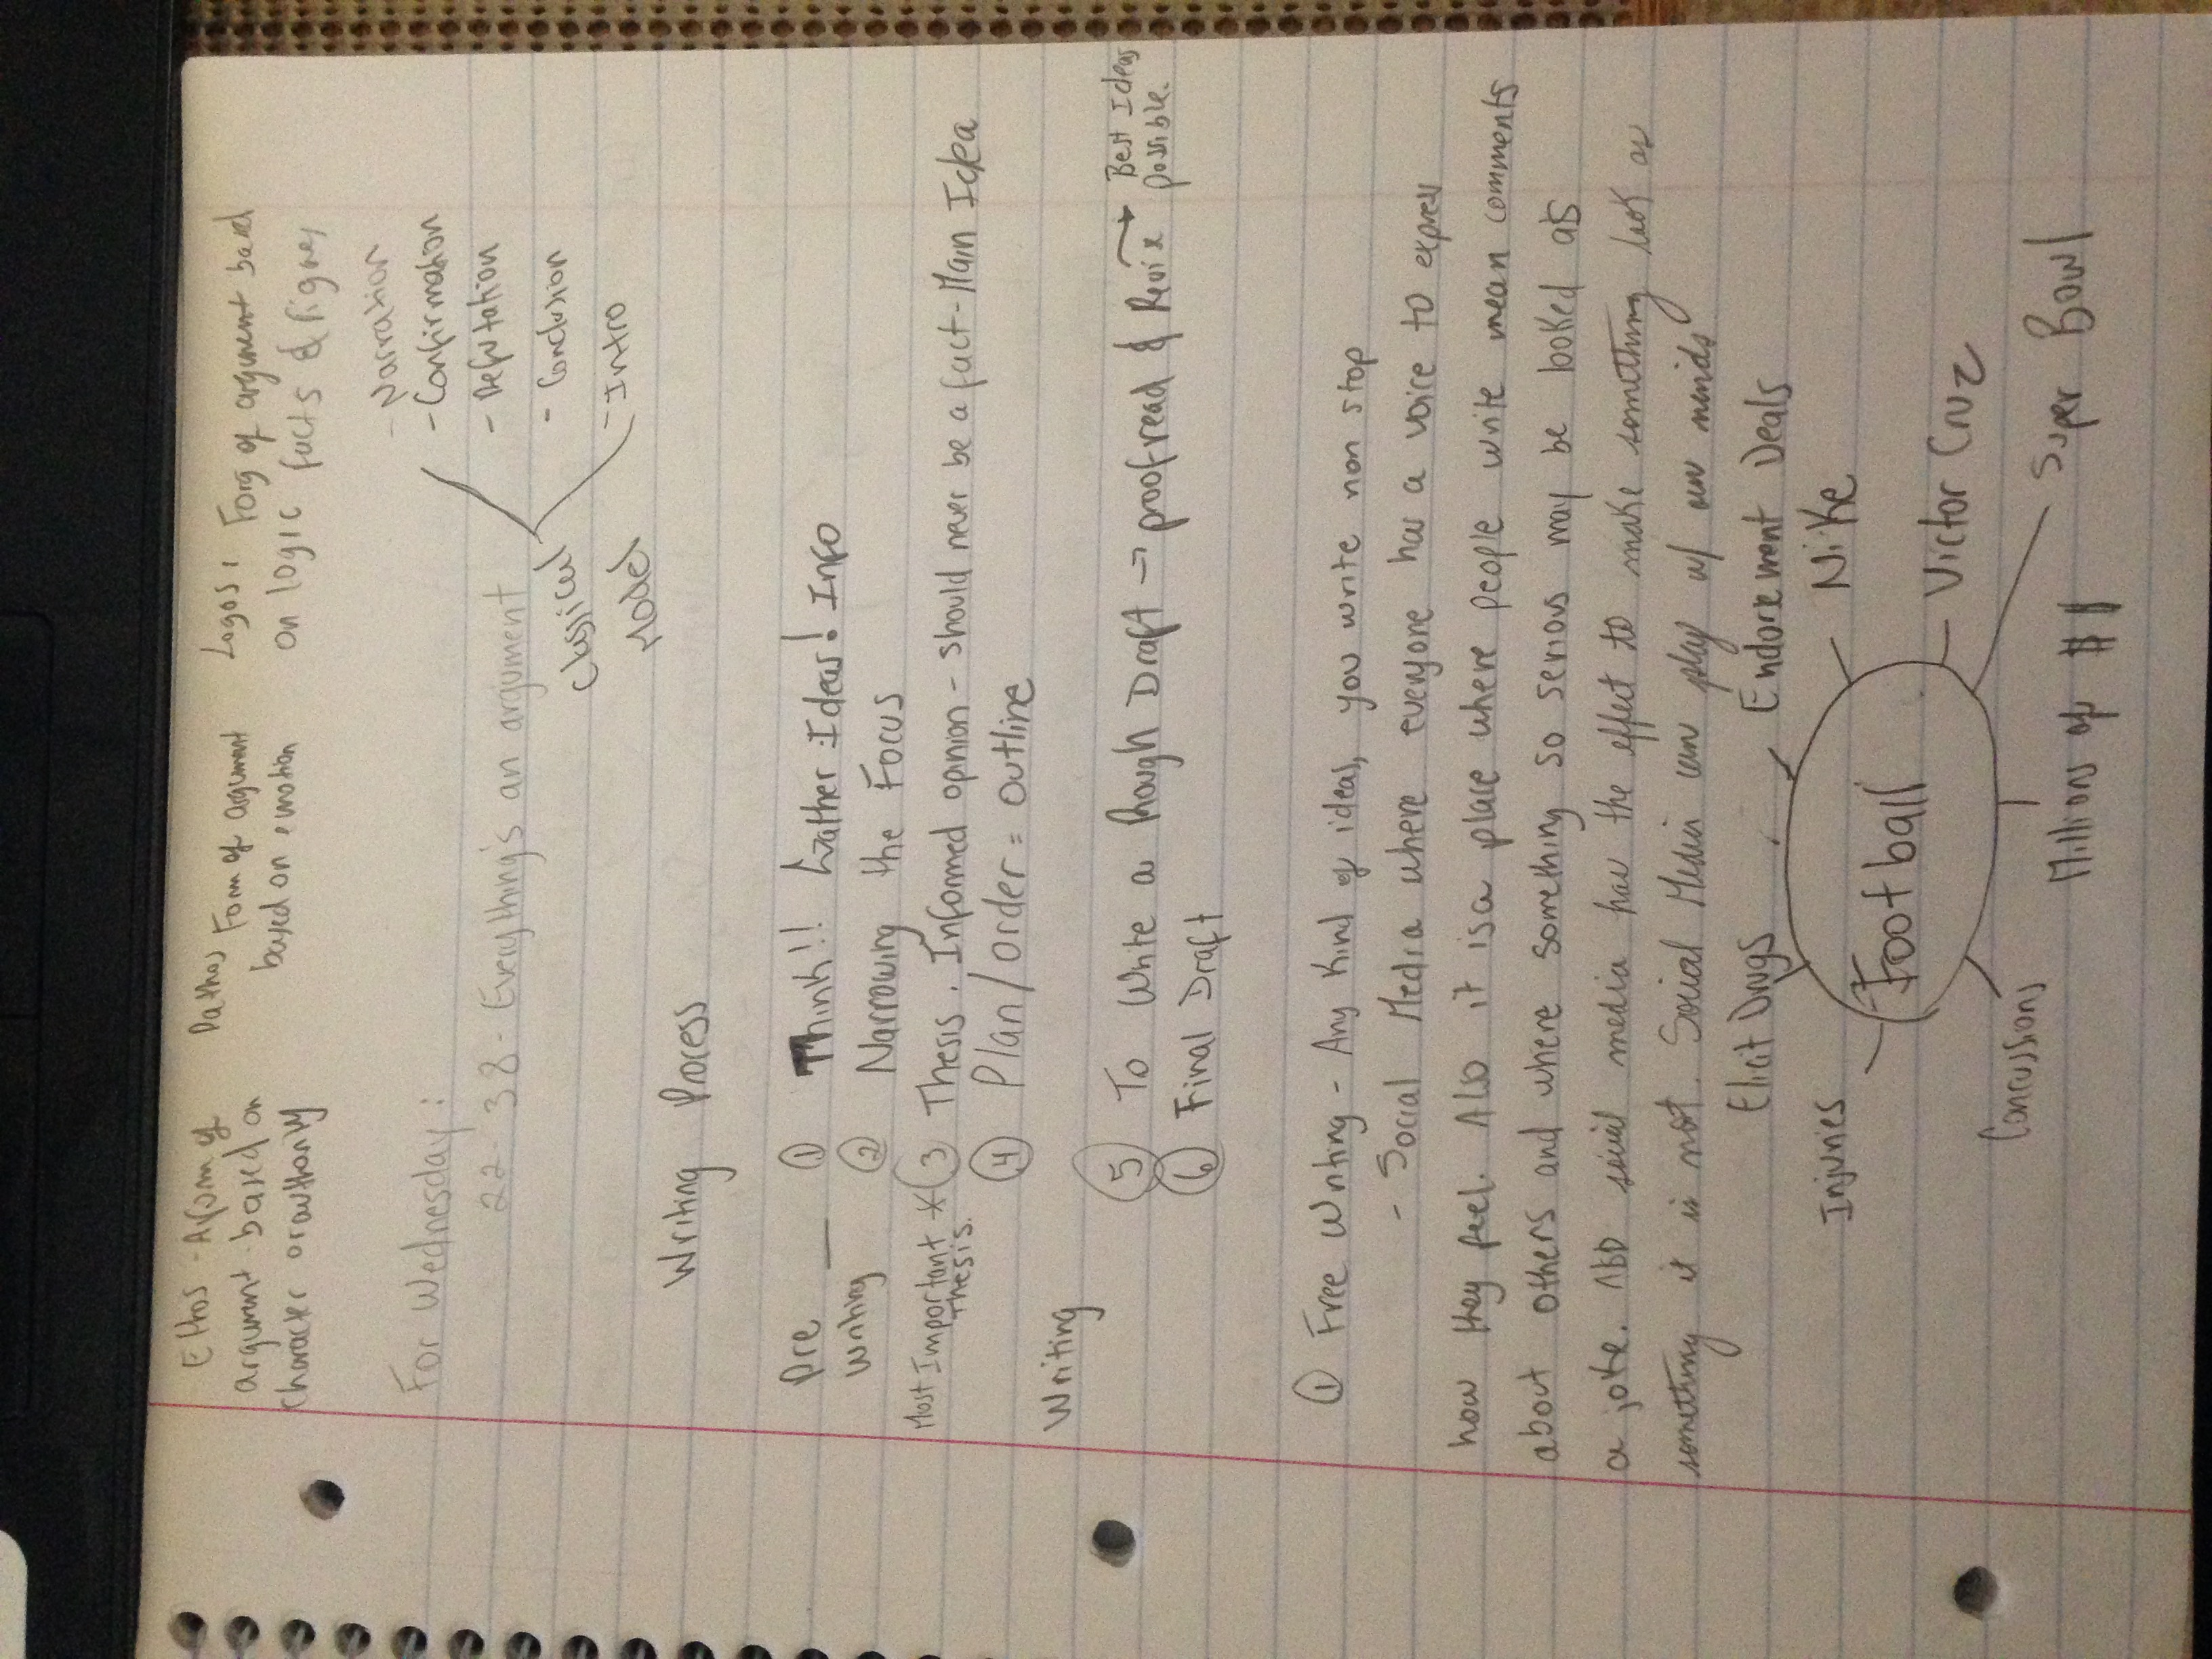 Ethos - A form of
argument based on
character or authority
Pathos Form of argument
based on emotion
Logos: Form of argument based
on logic facts & figures
For Wednesday:
22-38 - Everything's an argument
Classical
Model
- Narration
- Confirmation
- Refutation
- Conclusion
- Intro
Writing Process
Pre —
Writing
① Think!! Gather Ideas! Info
② Narrowing the Focus
Most Important *
thesis.
③ Thesis. Informed opinion - should never be a fact - Main Idea
④ Plan/order = outline
Writing
⑤ To Write a Rough Draft → proofread & Revise → Best Ideas
possible.
⑥ Final Draft
① Free Writing - Any Kind of ideas, you write non stop
- Social Media where everyone has a voice to express
how they feel. Also it is a place where people write mean comments
about others and where something so serious may be looked at as
a joke. Also social media has the effect to make something look as
something it is not. Social Media can play w/ our minds
Football
Elicit Drugs
Endorsement Deals
Nike
Victor Cruz
Super Bowl
Million of $$
Concussions
Injuries